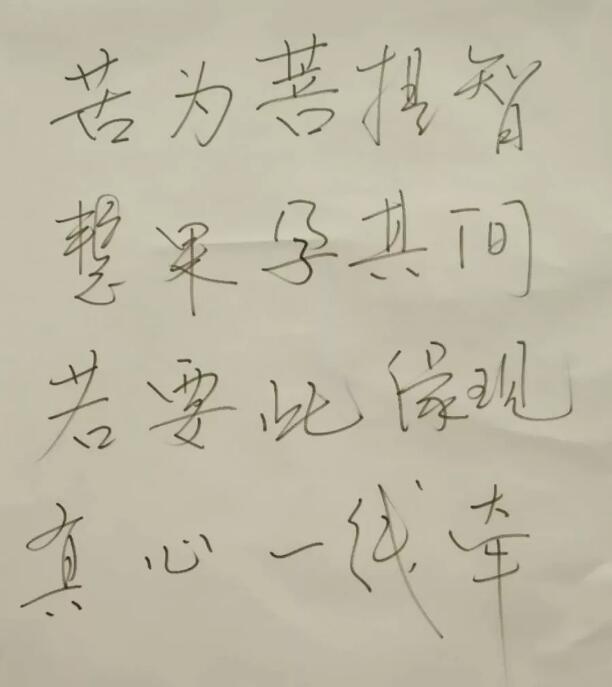 苦为菩提智
慧果孕其间
若要此缘现
真心一线牵